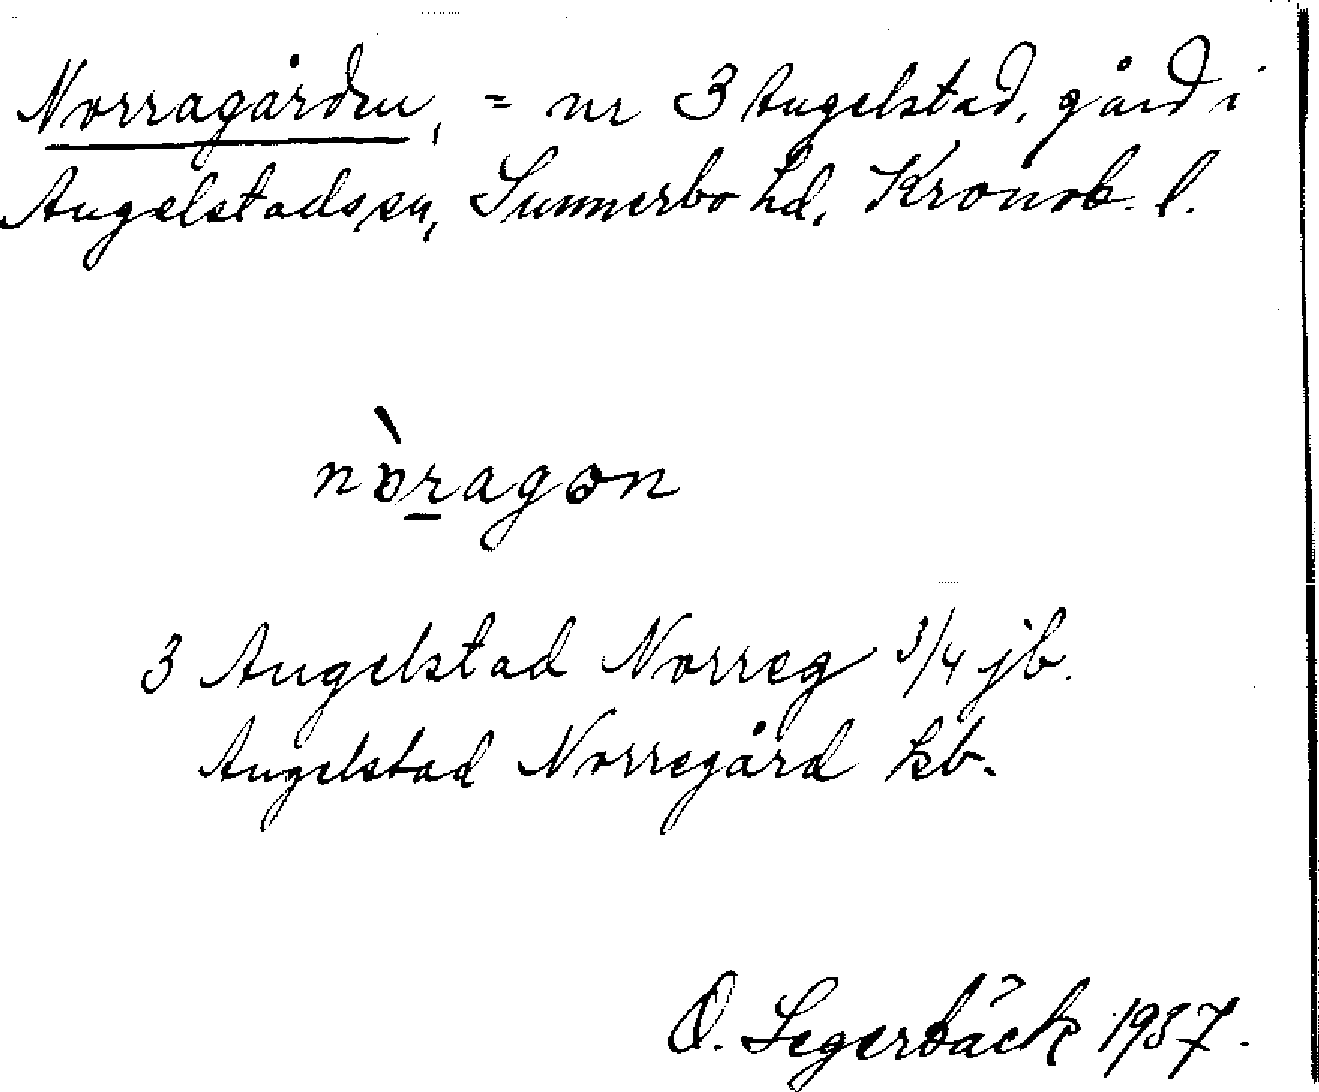 Norragården, = nr 3 Angelstad, gård i
Angelstads sn, Sunnerbo hd, Kronob. l.
nòragon
3 Angelstad Norreg 3/4 jb.
Angelstad Norregård kb.
O. Segerbäck 1937.